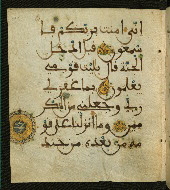 انى ءامنت بربكم فا
سمعون قيل ادخل
الجنة قال يليت قومى
يعلمون بما غفر لى
ربى وجعلنى من المكر
مين وما أنزلنا على قو
مه من بعده من جند